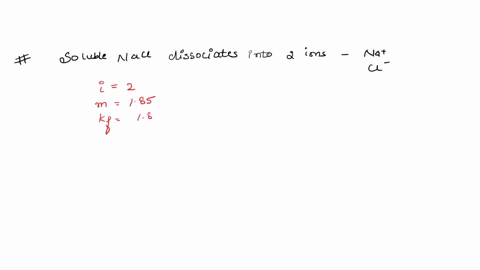 # Soluble NaCl dissociates into 2 ions - Na+
Cl-
i = 2
m = 1.85
kf = 1.8